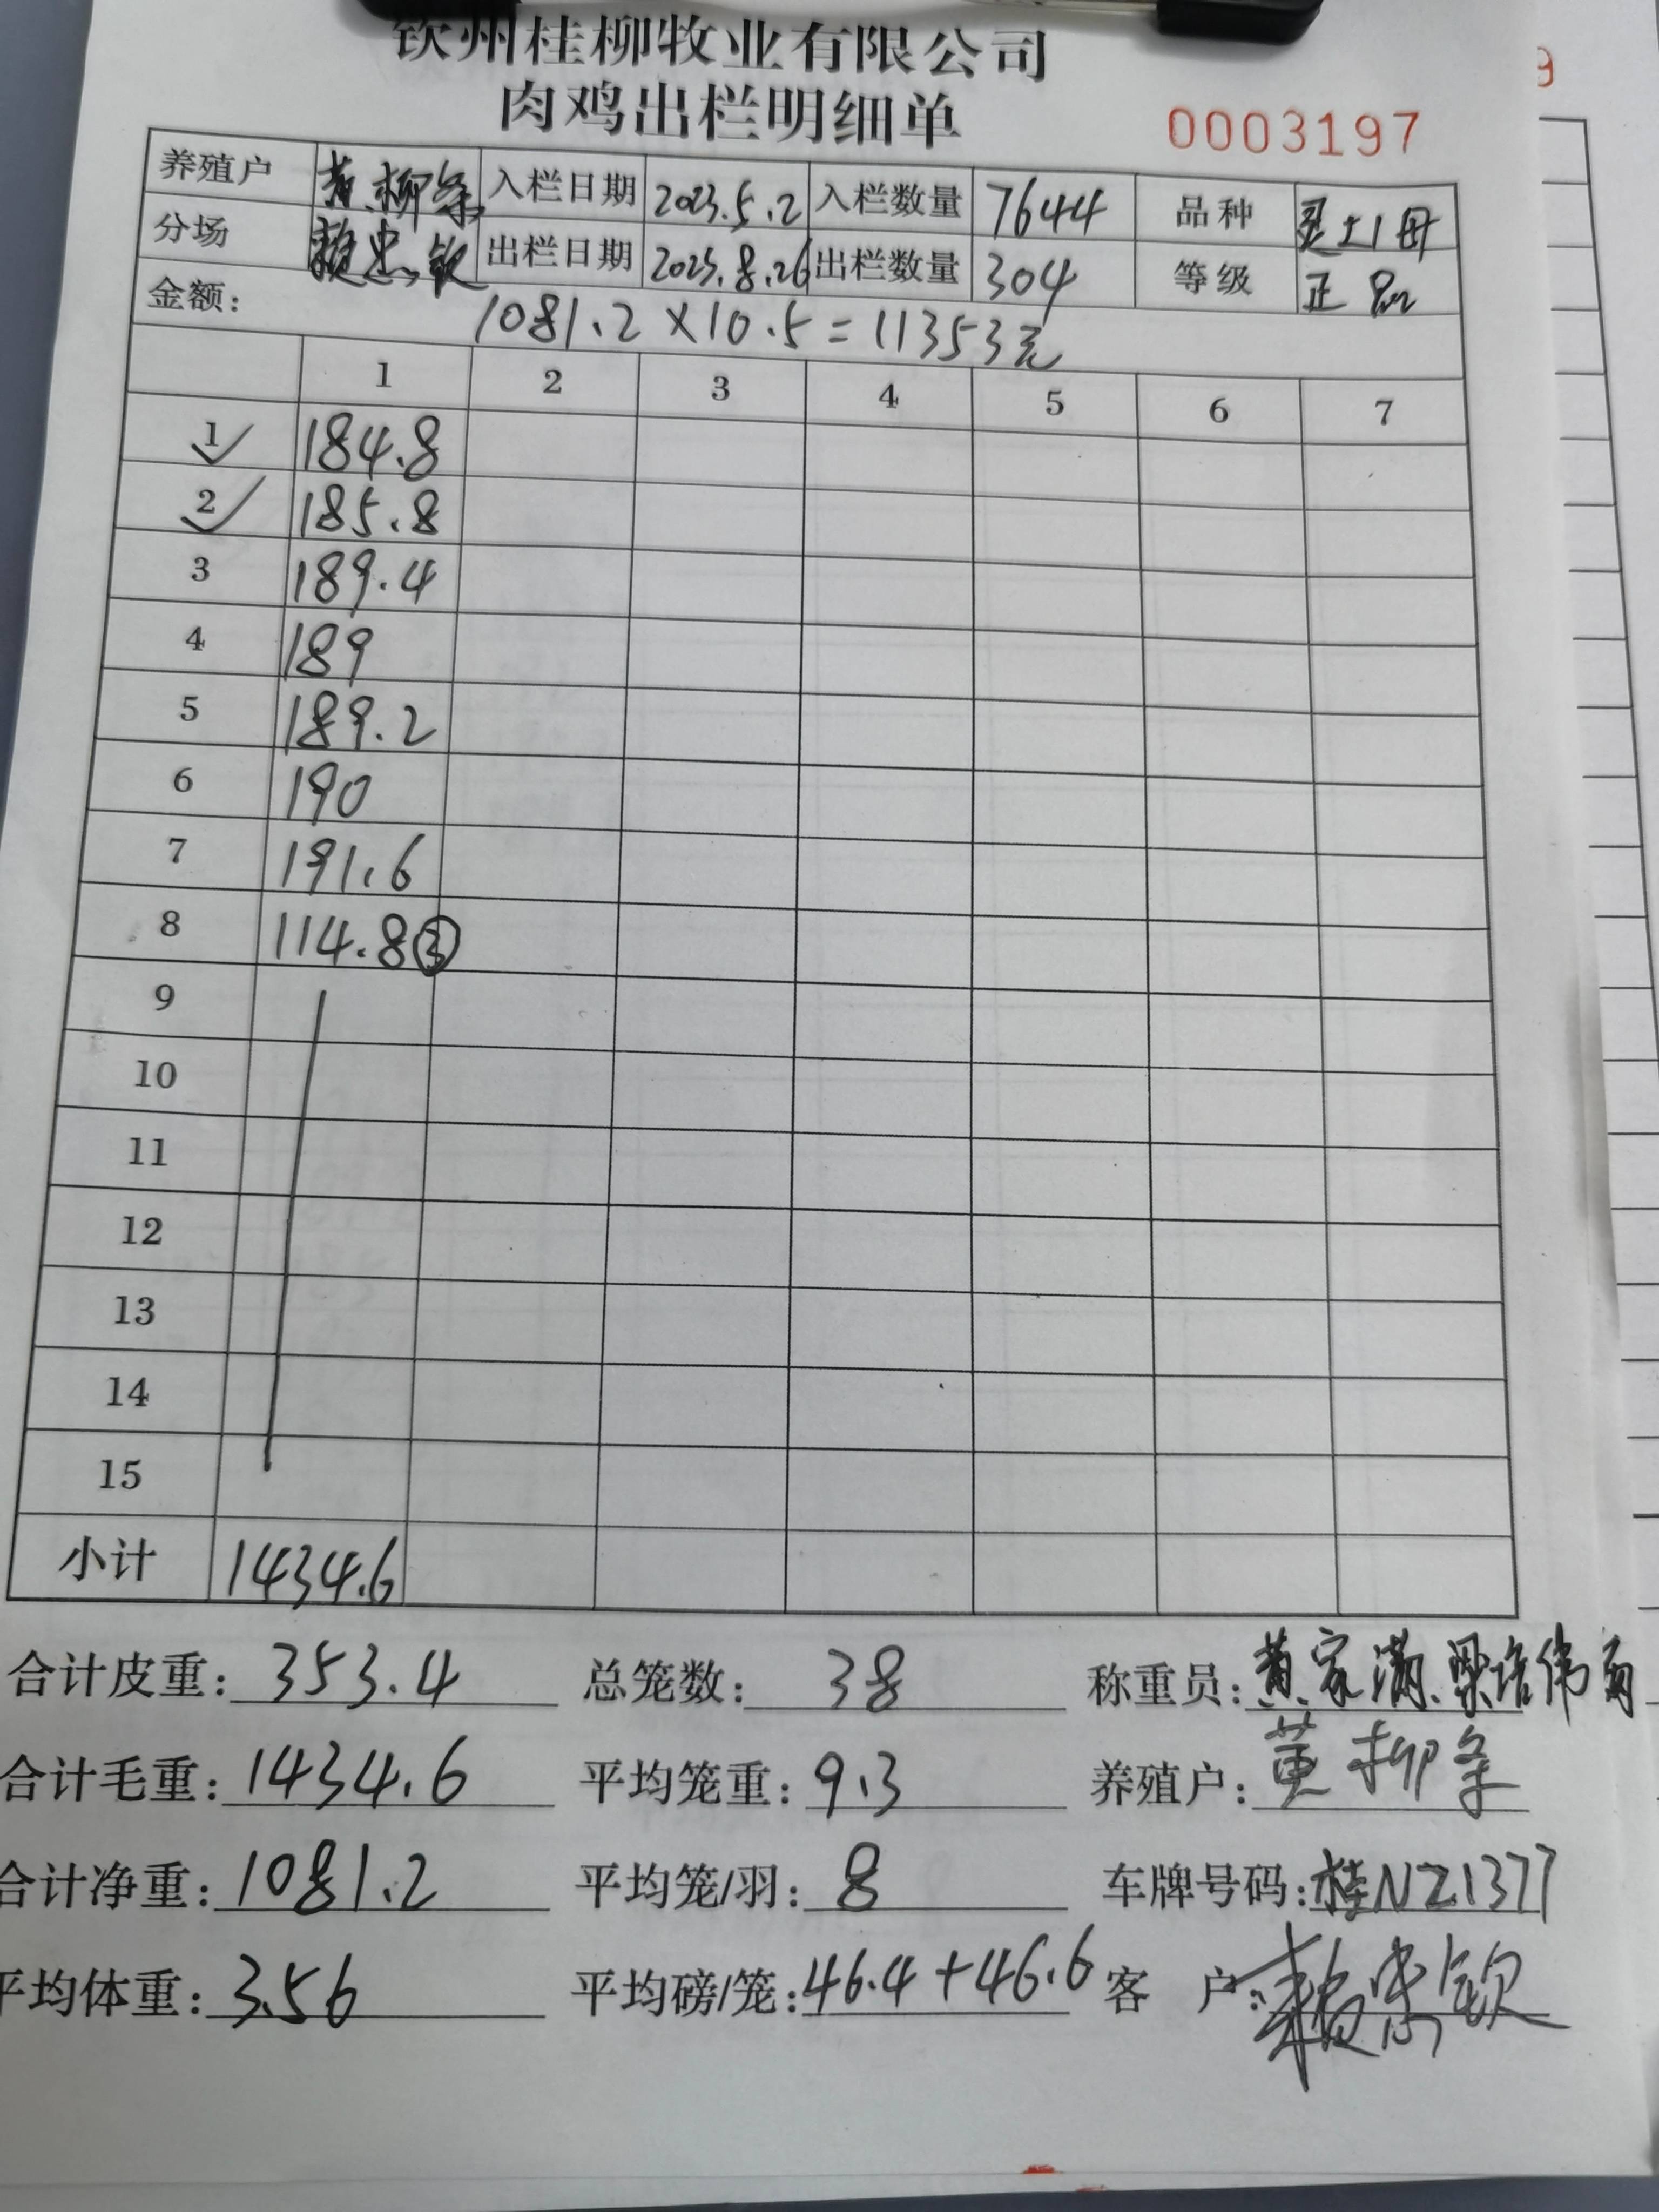 钦州桂柳牧业有限公司
肉鸡出栏明细单
0003197
养殖户 黄柳条 入栏日期 2023.5.2 入栏数量 7644 品种 灵土1母
分场 赖忠钦 出栏日期 2023.8.26 出栏数量 304 等级 正品
金额: 1081.2×10.5=11353元
1 2 3 4 5 6 7
1 184.8
2 185.8
3 189.4
4 189
5 189.2
6 190
7 191.6
8 114.8③
9
10
11
12
13
14
15
小计 1434.6
合计皮重: 353.4 总笼数: 38 称重员: 黄家满.梁
合计毛重: 1434.6 平均笼重: 9.3 养殖户: 黄柳条
合计净重: 1081.2 平均笼/羽: 8 车牌号码: 桂NZ1377
平均体重: 3.56 平均磅/笼: 46.4+46.6 客 户: 赖忠钦
9